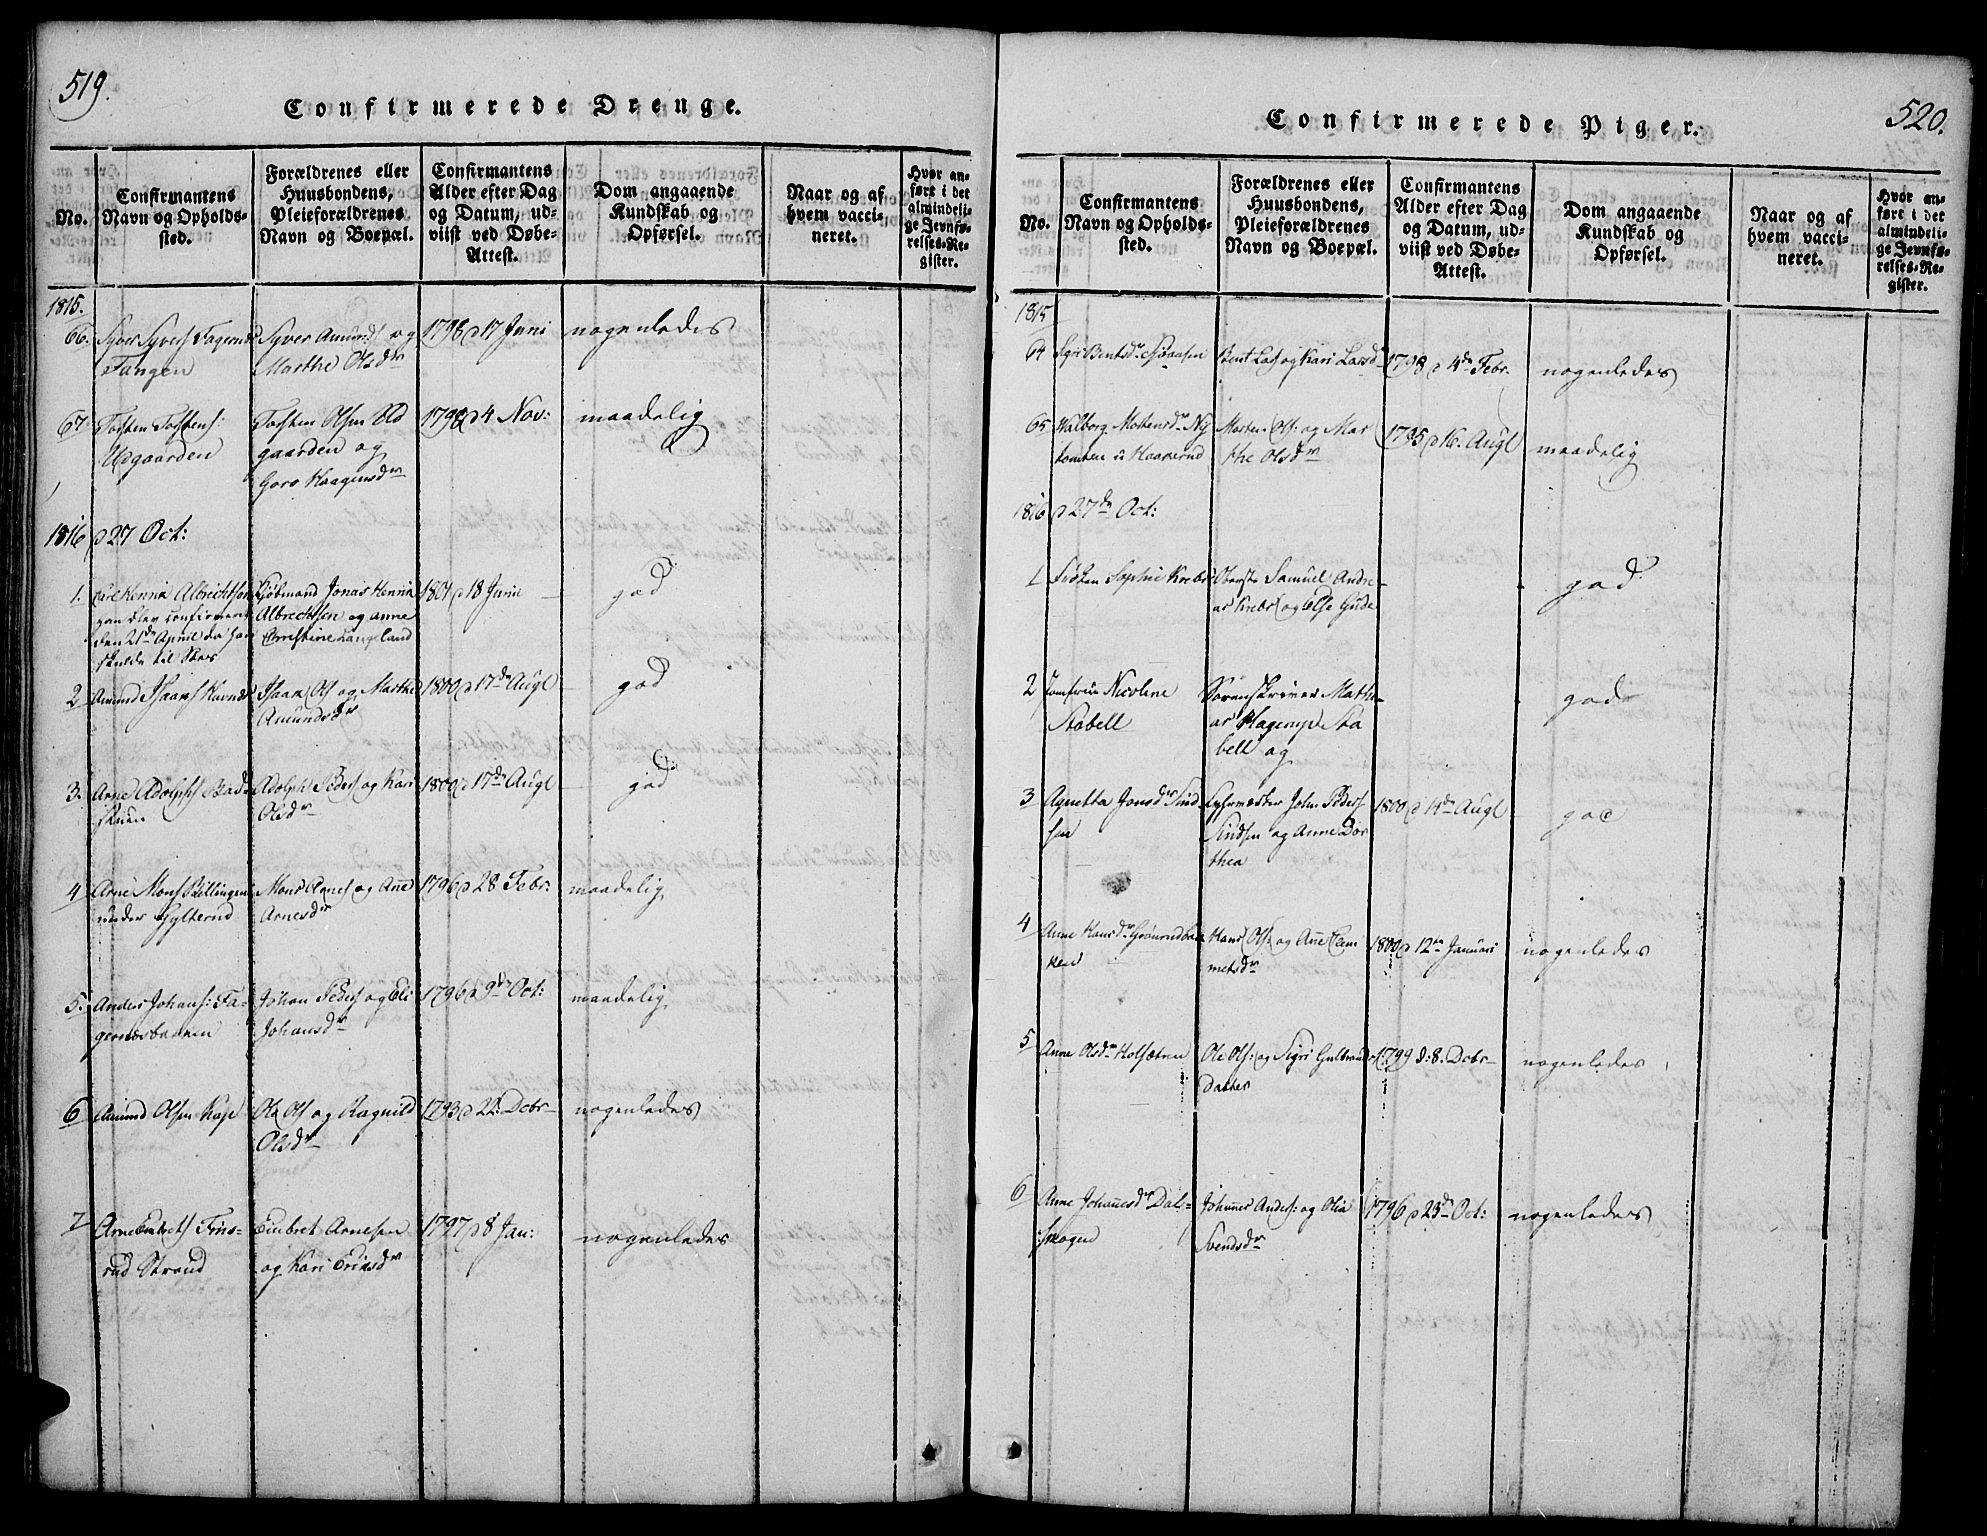 519.
Confirmerede Drenge.
No.
Confirmantens
Navn og Opholds-
sted.
Forældrenes eller
Huusbondens,
Pleieforældrenes
Navn og Boepæl.
Confirmantens
Alder efter Dag
og Datum, ud-
viist ved Døbe-
Attest.
Dom angaaende
Kundskab og
Opførsel.
Naar og af
hvem vacci-
neret.
Hvor an-
ført i det
almindeli-
ge Jevnfø-
relses-Re-
gister.
1815.
66. Syver Syvers
Tangen
Syver Amunds og
Marthe Olsdr
1798 d 17 Juni
nogenledes
67 Torsten Torstens:
Opgaarden
Torsten Olsen Od
gaarden og
Goro Haagensdr
1798 d 4 Nov:
maadelig
1816 d 27 Oct:
1. Henna Albrechtsen
han blev confirmeret
den 21de April da han
skulde til Søes
Kiøbmand Jonas Henna
Albrechtsen og anne
Christine Langeland
1801 d 18 Junii
god
2 Amund Isaacs
Isaac Ols og Marthe
Amundsdr
1800 d 17de Augl
god
3. Arne Adolphs Bad-
stuen
Adolph Peders og Kari
Olsdr
1800 d 17de Augl
god
4 Arne Mons Billingen
under Gylterud
Mons Arnes og Ane
Arnesdr
1796 d 28 Febr:
maadelig
5. Anders Johans: Fa-
gernesbakken
Johan Peders og Eli
Johansdr
1796 d 9de Oct:
maadelig
6 Amund Olsen Kase
Ole Ols og Ragnild
Olsdr
1793 d 22: Debr
nogenledes
7 Arne Embrets Trus-
rud Strand
Embret Arnesen
og Kari Eriksdr
1797 d 8 Jan:
nogenledes
520.
Confirmerede Piger.
No.
Confirmantens
Navn og Opholds-
sted.
Forældrenes eller
Huusbondens,
Pleieforældrenes
Navn og Boepæl.
Confirmantens
Alder efter Dag
og Datum, ud-
viist ved Døbe-
Attest.
Dom angaaende
Kundskab og
Opførsel.
Naar og af
hvem vacci-
neret.
Hvor an-
ført i det
almindeli-
ge Jevnfø-
relses-Re-
gister.
1815
64 Sigri Bentsdr
Bent Lars og Kari Larsdr
1798 d 4de Febr.
nogenledes
65 Walborg Mortensdr Ny
tomten u Haaverud
Morten Ols: og Mar
the Olsdr
1795 d 16. Augl
maadelig
1816 d 27de Oct:
1 Frøken Sophie Krebs
Oberste Samuel Andre-
as Krebs og Else Gude
god
2 Jomfrue Nicoline
Stabell
Sorenskriver Mathi-
as Hagerup Sta
bell og
god
3 Agnetha Jonsdr Sind
sen
John Peders
Sindsen og Anne Dor
thea
1800 d 14de Augl
god
4 Anne Hansdr Grønrudbak
ken
Hans Ols: og Ane Clem
metsdr
1800 d 12te Januari
nogenledes
5 Anne Olsdr Holsætren
Ole Ols: og Sigri Gulbrands
datter
1799 d: 8. Debr
nogenledes
6 Anne Johanesdr Dal-
skogen
Johannes Anders: og Olia
Svendsdr
1796 d 23de Oct:
nogenledes